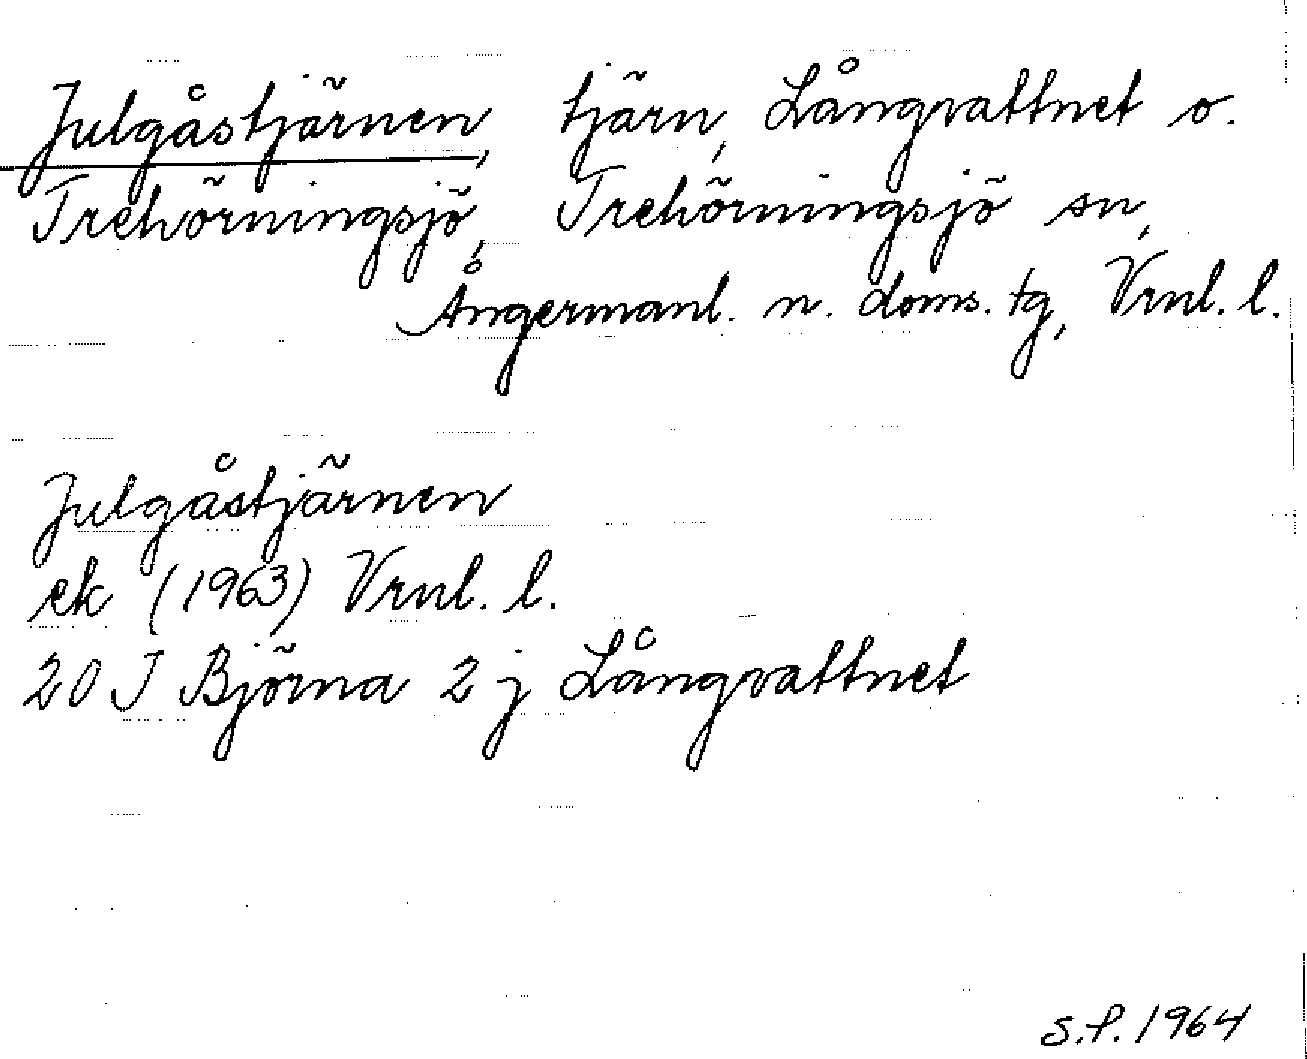 Julgåstjärnen, tjärn, Långvattnet o.
Trehörningsjö, Trehörningsjö sn,
Ångermanl. n. doms. tg, Vrnl. l.
Julgåstjärnen
ek (1963) Vrnl. l.
20 J Björna 2 j Långvattnet
S.P. 1964